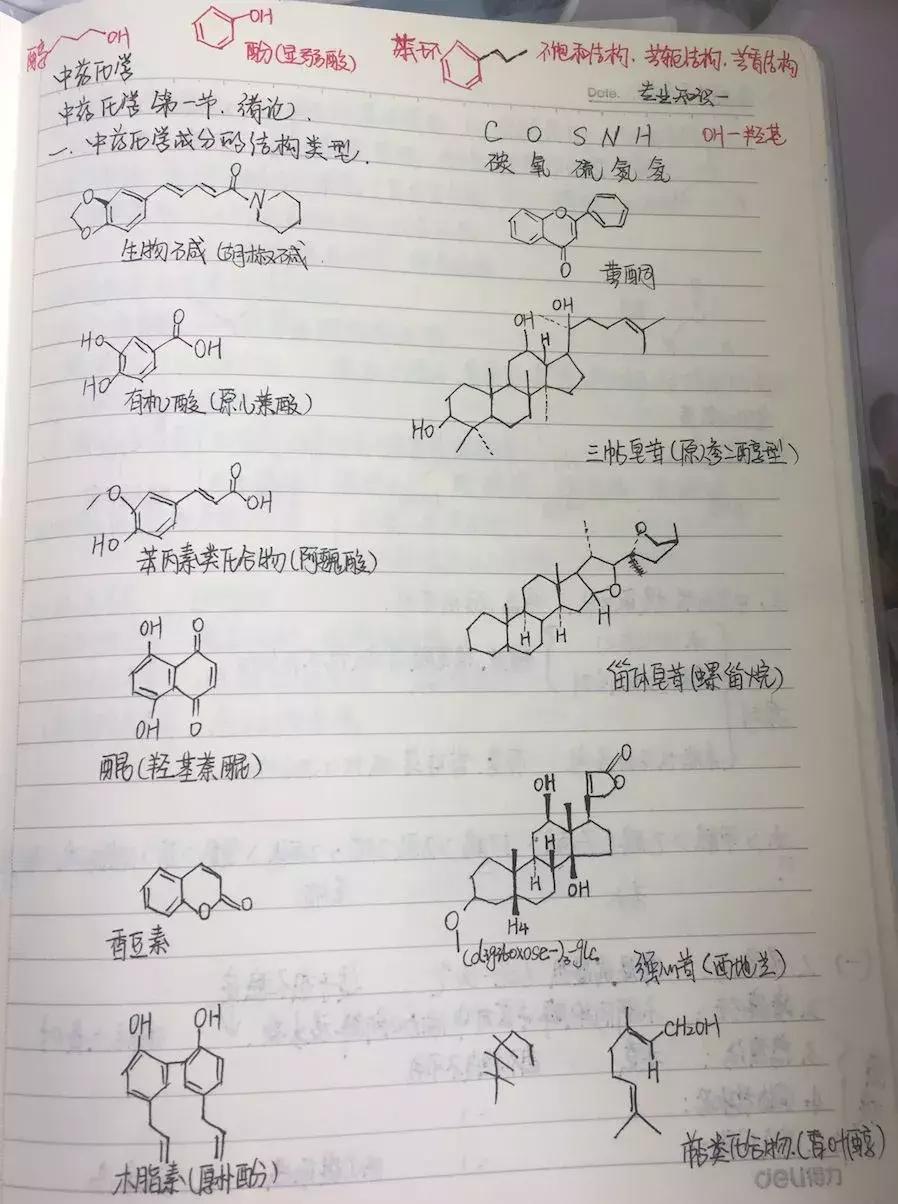 醇 OH
OH
酚(显弱酸)
苯环 不饱和结构、芳轭结构、芳香结构
中药化学
Date. 专业知识一
中药化学(第一节.绪论).
C O S N H OH-羟基
碳 氧 硫 氮 氢
一、中药化学成分的结构类型.
O O O N
生物碱(胡椒碱
O O
黄酮
HO HO O OH
有机酸(原儿茶酸)
OH OH H HO
三帖皂苷(原)参二醇型)
O HO O OH
苯丙素类化合物(阿魏酸)
O O H H H
甾体皂苷(螺甾烷)
OH O OH O
醌(羟基萘醌)
OH O O H H OH
O H4
(digitoxose-)3-glc
强心苷(西地兰)
O O
香豆素
OH OH
木脂素(厚朴酚)
CH2OH
H
萜类化合物.(香叶醇)
deli得力